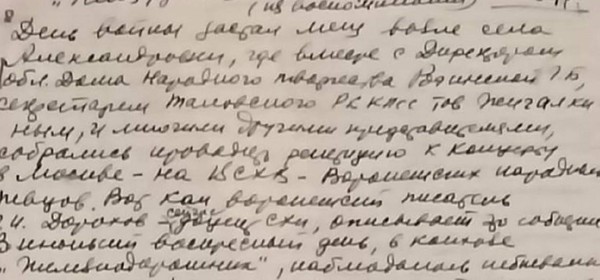 (из воспоминаний)
День войны застал меня возле села
Александровки, где вместе с Директором
обл. Дома Народного творчества
секретарем Таловского РК КПСС тов Жигалки
ным, и многими другими представителями,
собрались проводить репетицию к концерту
в Москве - на ВСХВ - Воронежских народных
певцов. Вот как воронежский писатель
Дорохов описывает это событие
В июньский воскресный день, в клубе
"Железнодорожник", наблюдалось